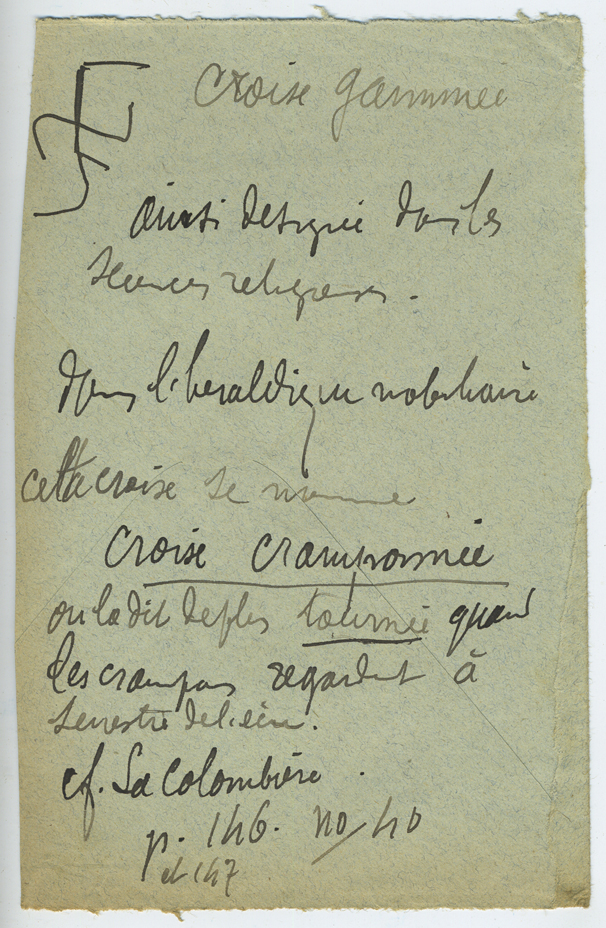 croise gammée
ainsi designé dans les
sciences religieuses.
dans l'heraldique nobiliaire
cetta croise se nomme
croise cramponnée
on la dit de plus tournée quand
les crampons regardent à
senestre de l'écu.
cf. La Colombière.
p. 146. no/40
et 147